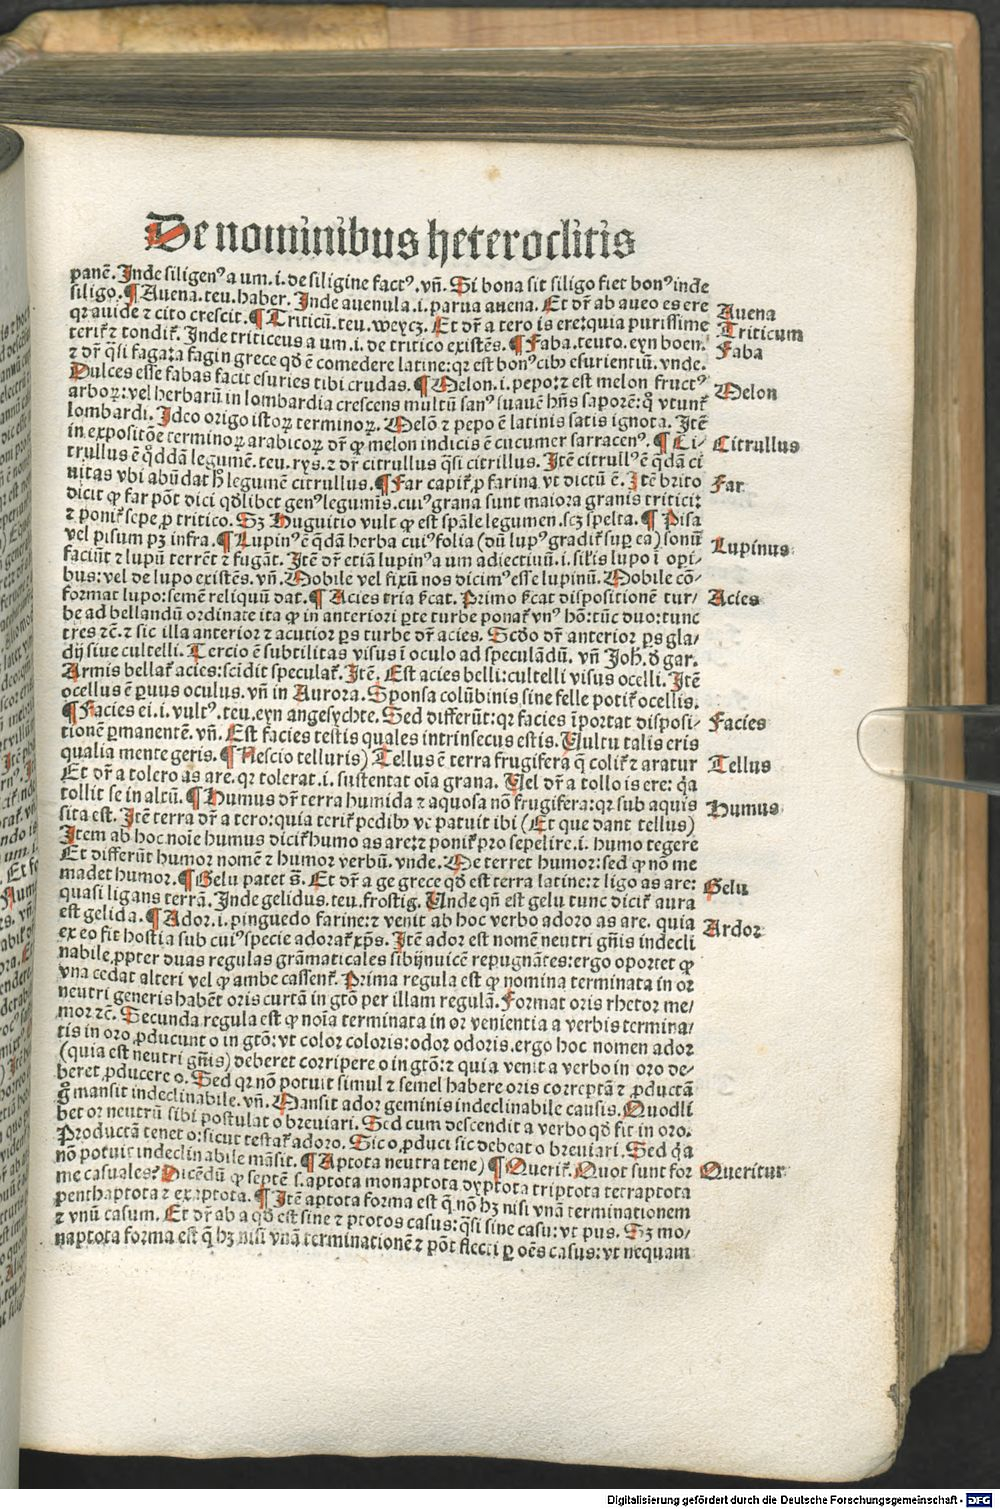 De nominibus heteroclitis
panē. Inde siligenꝰ a um. i. de siligine factꝰ. vn̄. Si bona sit siligo fiet bonꝰ inde
siligo. ¶ Auena. teu. haber. Inde auenula. i. parua auena. Et dr̄ ab aueo es ere
qꝛ auide ⁊ cito crescit. ¶ Triticū. teu. weycz. Et dr̄ a tero is ere: quia purissime
Auena
Triticum
terit᷑ ⁊ tondit᷑. Inde triticeus a um. i. de tritico existēs. ¶ Faba. teuto. eyn boen.
Faba
⁊ dr̄ q̄si faga: a fagin grece qd̄ ē comedere latine: qꝛ est bonꝰ cibꝰ esurientiū. vnde.
Dulces esse fabas facit esuries tibi crudas. ¶ Melon. i. pepo: ⁊ est melon fructꝰ
Melon
arboꝝ: vel herbarū in lombardia crescens multū sanꝰ suauē hn̄s saporē: q̊ vtunt᷑
lombardi. Ideo origo istoꝝ terminoꝝ. Melō ⁊ pepo ē latinis satis ignota. Itē
in expositōe terminoꝝ arabicoꝝ dr̄ ꝙ melon indicis ē cucumer sarracenꝰ. ¶ Ci⸗
Citrullus
trullus ē q̊ddā legumē. teu. rys. ⁊ dr̄ citrullus q̄si citrillus. Itē citrullꝰ ē q̄dā ci
uitas vbi abūdat h̄ legumē citrullus. ¶ Far capit᷑ ꝓ farina vt dictū ē. Itē brito
Far
dicit ꝙ far pōt dici qd̄libet genꝰ legumīs. cuiꝰ grana sunt maiora granis tritici:
⁊ ponit᷑ sepe ꝓ tritico. Sꝫ Huguitio vult ꝙ est spāle legumen. scꝫ spelta. ¶ Pisa
vel pisum pꝫ infra. ¶ Lupinꝰ ē q̄dā herba cuiꝰ folia (dū lupꝰ gradit᷑ suꝑ ea) sonū
Lupinus
faciūt ⁊ lupū terrēt ⁊ fugāt. Itē dr̄ etiā lupinꝰ a um adiectiuū. i. sil̄is lupo ī opi⸗
bus: vel de lupo existēs. vn̄. Mobile vel fixū nos dicimꝰ esse lupinū. Mobile cō⸗
format lupo: semē reliquū dat. ¶ Acies tria s̄cat. Primo s̄cat dispositionē tur⸗
Acies
be ad bellandū ordinate ita ꝙ in anteriori ꝑte turbe ponat᷑ vnꝰ hō: tūc duo: tunc
tres ⁊c̄. ⁊ sic illa anterior ⁊ acutior ꝑs turbe dr̄ acies. Scd̄o dr̄ anterior ꝑs gla⸗
dij siue cultelli. Tercio ē subtilitas visus ī oculo ad speculādū. vn̄ Joh. d̄ gar.
Armis bellat᷑ acies: scīdit speculat᷑. Itē. Est acies belli: cultelli visus ocelli. Itē
ocellus ē ꝑuus oculus. vn̄ in Aurora. Sponsa colūbinis sine felle potit᷑ ocellis.
¶ Facies ei. i. vultꝰ. teu. eyn angesychte. Sed differūt: qꝛ facies īportat disposi⸗
Facies
tionē ꝑmanentē. vn̄. Est facies testis quales intrinsecus estis. Vultu talis eris
qualia mente geris. ¶ Nescio telluris) Tellus ē terra frugifera q̄ colit᷑ ⁊ aratur
Tellus
Et dr̄ a tolero as are. qꝛ tolerat. i. sustentat oīa grana. Vel dr̄ a tollo is ere: q̄a
tollit se in altū. ¶ Humus dr̄ terra humida ⁊ aquosa nō frugifera: qꝛ sub aquis
Humus
sita est. Itē terra dr̄ a tero: quia terit᷑ pedibꝰ vt patuit ibi (Et que dant tellus)
Item ab hoc noīe humus dicit᷑ humo as are: ⁊ ponit᷑ pro sepelire. i. humo tegere
Et differūt humor nomē ⁊ humor verbū. vnde. Me terret humor: sed ꝙ nō me
madet humor. ¶ Gelu patet s̄. Et dr̄ a ge grece qd̄ est terra latine: ⁊ ligo as are:
Gelu
quasi ligans terrā. Inde gelidus. teu. frostig. Unde qn̄ est gelu tunc dicit᷑ aura
est gelida. ¶ Ador. i. pinguedo farine: ⁊ venit ab hoc verbo adoro as are. quia
Ardor
ex eo fit hostia sub cuiꝰ specie adorat᷑ xp̄s. Itē ador est nomē neutri gn̄is indecli
nabile, ꝓpter duas regulas grāmaticales sibijnuicē repugnātes: ergo oportet ꝙ
vna cedat alteri vel ꝙ ambe cassent᷑. Prima regula est ꝙ nomina terminata in or
neutri generis habēt oris curtā in gtō per illam regulā. Format oris rhetor me⸗
mor ⁊c̄. Secunda regula est ꝙ noīa terminata in or venientia a verbis termina⸗
tis in oro ꝓducunt o in gtō: vt color coloris: odor odoris. ergo hoc nomen ador
(quia est neutri gn̄is) deberet corripere o in gtō: ⁊ quia venit a verbo in oro de⸗
beret ꝓducere o. Sed qꝛ nō potuit simul ⁊ semel habere oris correptā ⁊ ꝓductā
g̊ mansit indeclinabile. vn̄. Mansit ador geminis indeclinabile causis. Quodli
bet or neutrū sibi postulat o breuiari. Sed cum descendit a verbo qd̄ fit in oro.
Productā tenet o: sicut testat᷑ adoro. Sic o ꝓduci sic debeat o breuiari. Sed q̄a
nō potuit indeclinabile māsit. ¶ Aptota neutra tene) ¶ Querit᷑. Quot sunt for
Queritur
me casuales: Dicēdū ꝙ septē s. aptota monaptota dyptota triptota tetraptota
penthaptota ⁊ exaptota. ¶ Itē aptota forma est q̄ nō hꝫ nisi vnā terminationem
⁊ vnū casum. Et dr̄ ab a qd̄ est sine ⁊ ptotos casus: q̄si sine casu: vt pus. Sꝫ mo⸗
naptota forma est q̄ hꝫ nisi vnā terminationē ⁊ pōt flecti ꝑ oēs casus: vt nequam
Digitalisierung gefördert durch die Deutsche Forschungsgemeinschaft - DFG